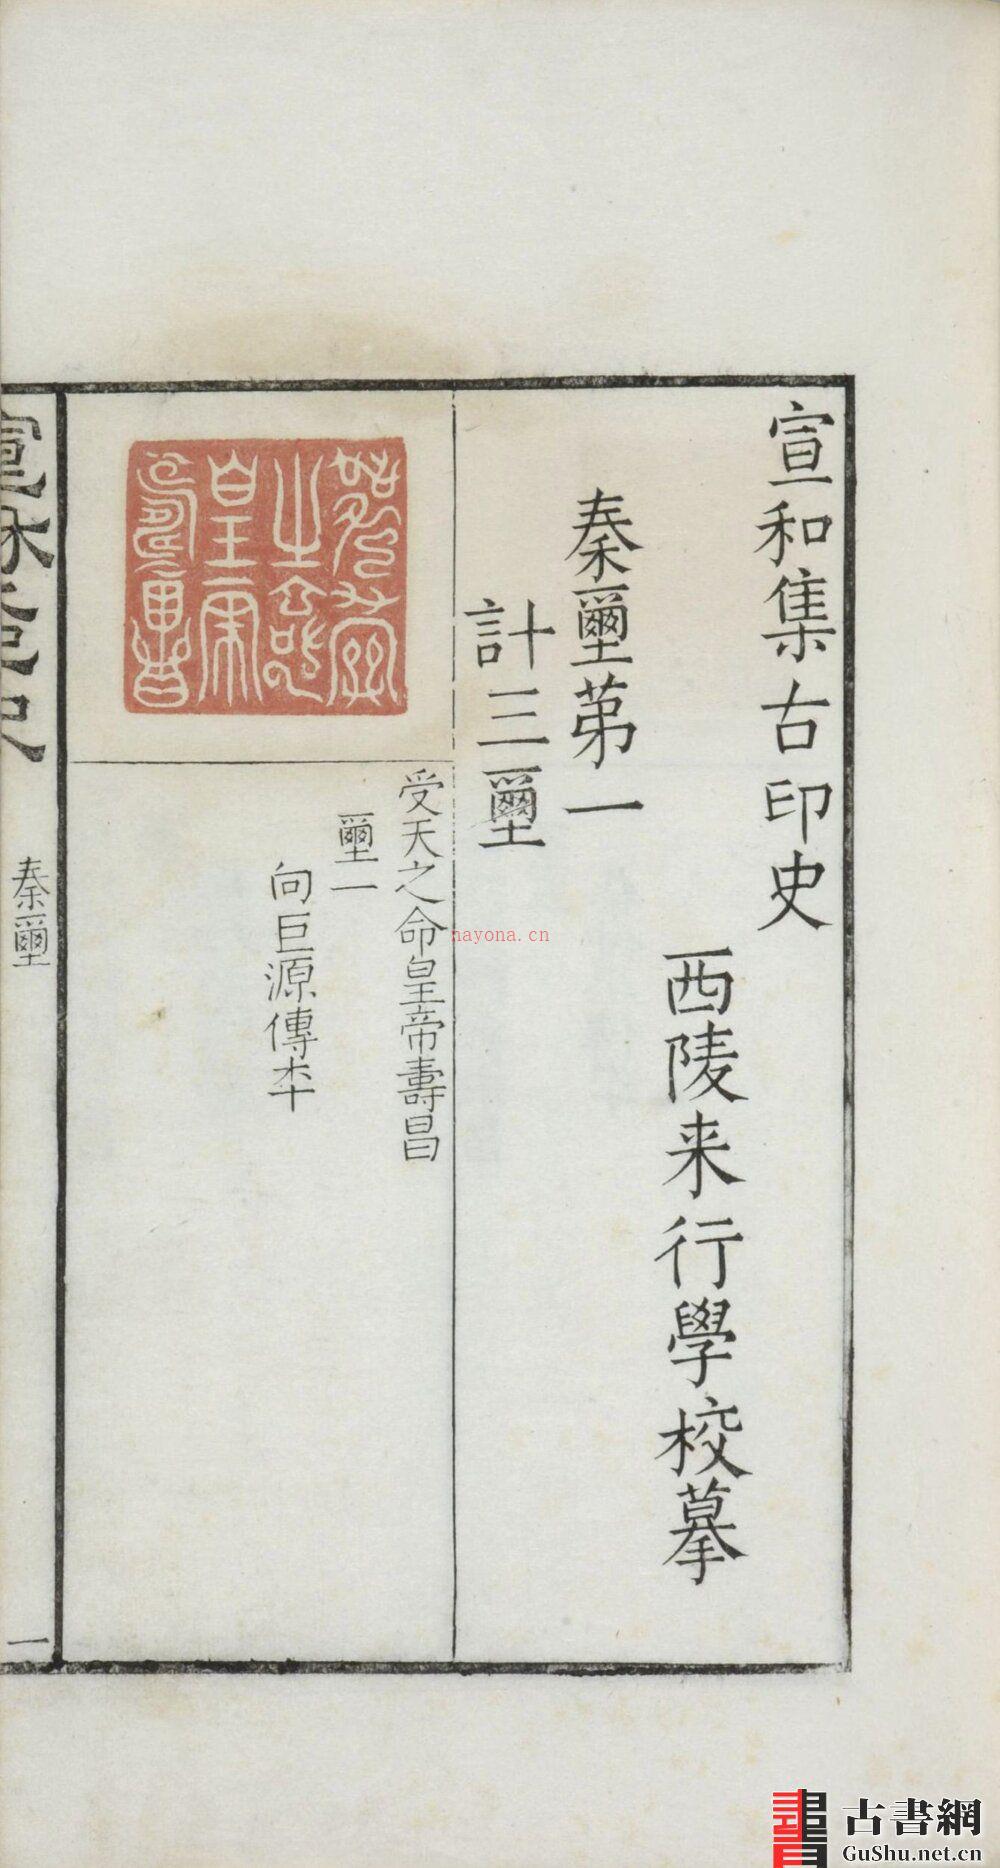 宣和集古印史
西陵来行學校摹
秦璽苐一
計三璽
受天之命皇帝壽昌
璽一
向巨源傳夲
宣和集古印史
秦璽
一
nayona.cn
古書網
GuShu.net.cn